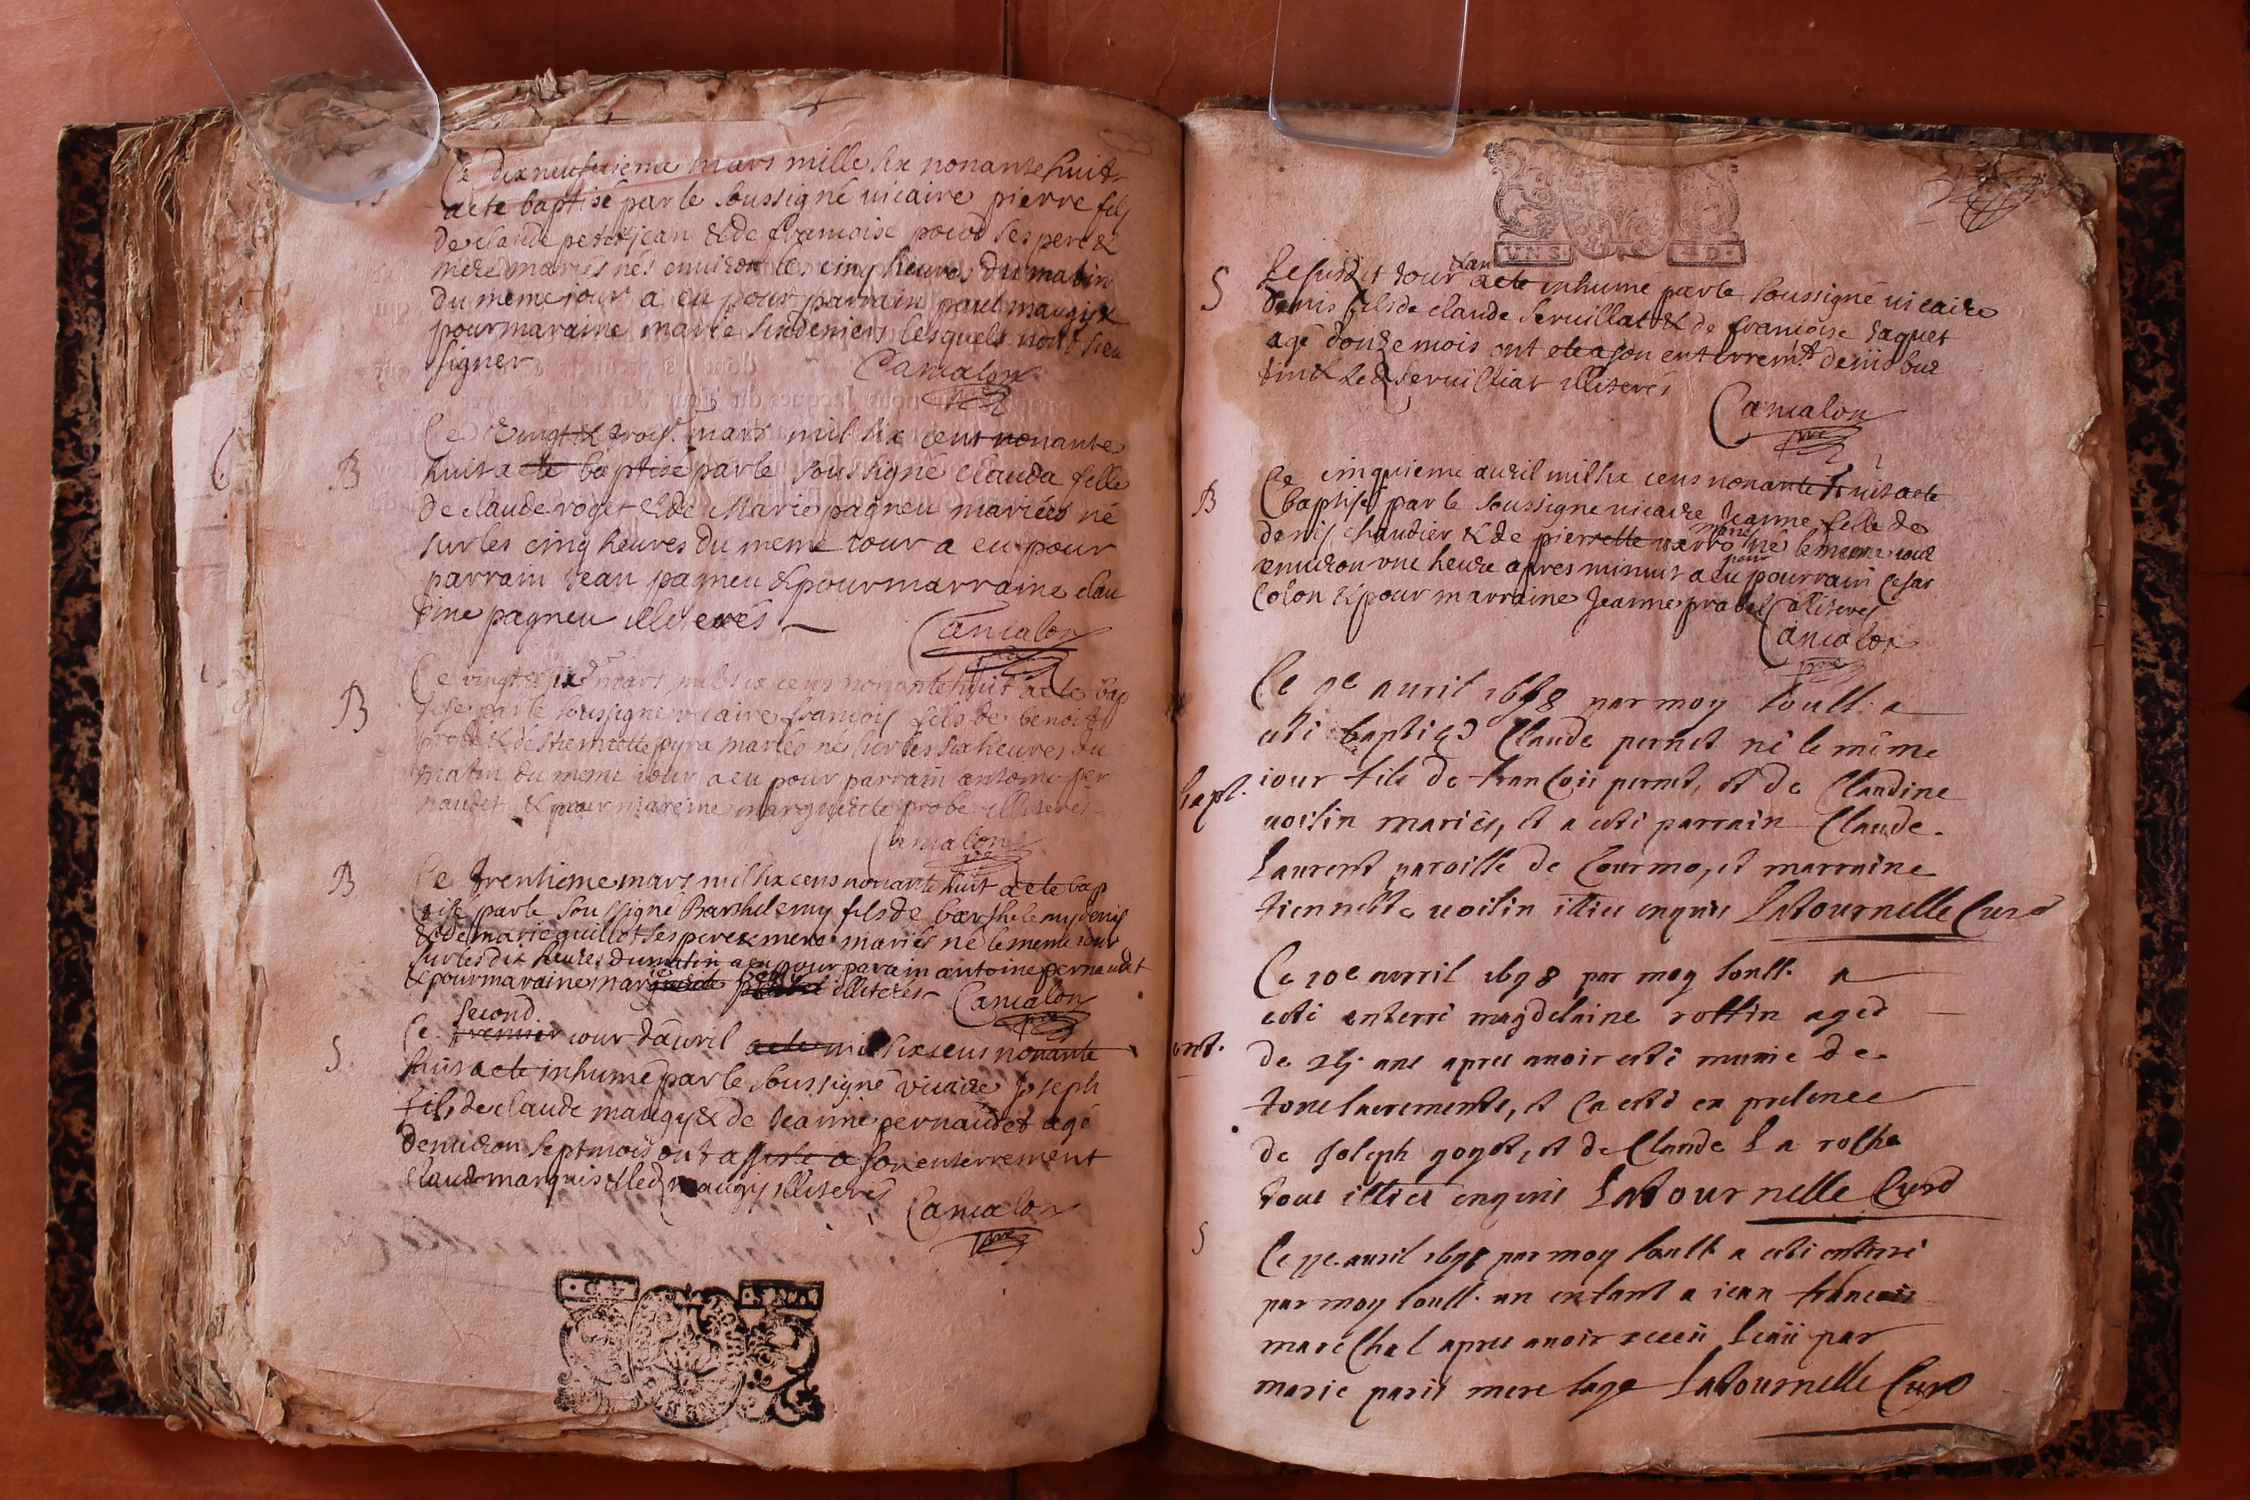 Ce dixneufvieme mars mille six nonante huit
a ete baptisé par le soussigné vicaire pierre fils
de claude petitjean & de francoise ses pere &
mere mariés nés environ les cinq heures du matin
du meme jour a eu pour parrain paul maugy &
pour maraine marie sixdeniers lesquels n'ont sceu
signer
Camalon
B
Ce vingt & trois mars mil six cens nonante
huit a ete baptisé par le soussigné clauda fille
de claude roget & de Marie pagneu mariés né
sur les cinq heures du meme iour a eu pour
parrain Jean pagneu & pour marraine clau
dine pagneu illiterés
Camalon
B
Ce vingt & six mars mil six cens nonante huit a ete bap
tisé par le soussigné vicaire francois fils de benoit
probe & d'estiennette pyra mariés né sur les six heures du
matin du meme iour a eu pour parrain antoine per
naudet & pour mareine marguerite probe illiterés
Camalon
B
Ce trentieme mars mil six cens nonante huit a ete bap
tisé par le soussigné Barthelemy fils de barthelemy denis
& de marie guillot ses pere & mere mariés né le meme iour
sur les dix heures du matin a eu pour parain antoine pernaudet
& pour maraine illiterés Camalon
second
S. Ce premier iour d'avril a ete mil six cens nonante
huit a ete inhumé par le soussigné vicaire Joseph
fils de claude maugy & de Jeanne pernaudet agé
denviron sept mois ont assisté a son enterrement
claude marquis & led maugy illiterés
Camalon
S Le susdit iour a ete inhumé par le soussigné vicaire
denis fils de claude servillat & de francoise Jaquet
agé douze mois ont ete a son enterremt denis bur
tin & led servillat illiterés
Camalon
B Ce cinquieme avril mil six cens nonante huit a ete
baptisé par le soussigné vicaire Jeanne fille de
denis chautier & de pierrette mariés né le meme iour
environ une heure apres minuit a eu pour parrain Cesar
Colon & pour marraine Jeanne illiterés
Camalon
Ce 9e avril 1698 par moy soult. a
esté baptisé Claude pernet né le même
bapt. iour fils de francois pernet, et de Claudine
voisin mariés, et a esté parrain Claude
Laurent paroisse de Courmo, et marraine
tiennette voisin illiés enquis Latournelle Curé
Ce 10e avril 1698 par moy soult. a
esté enterré magdelaine rottin aged
ent. de ans apres avoir esté munie de
tous sacrements, et Ca esté en presence
de Joseph goyot, et de Claude La roche
tous illiés enquis Latournelle Curé
S Ce 11e avril 1698 par moy soult a esté enterré
par moy soult. un enfant a iean francois
marechal apres avoir receü leaü par
marie paris mere sage Latournelle Curé